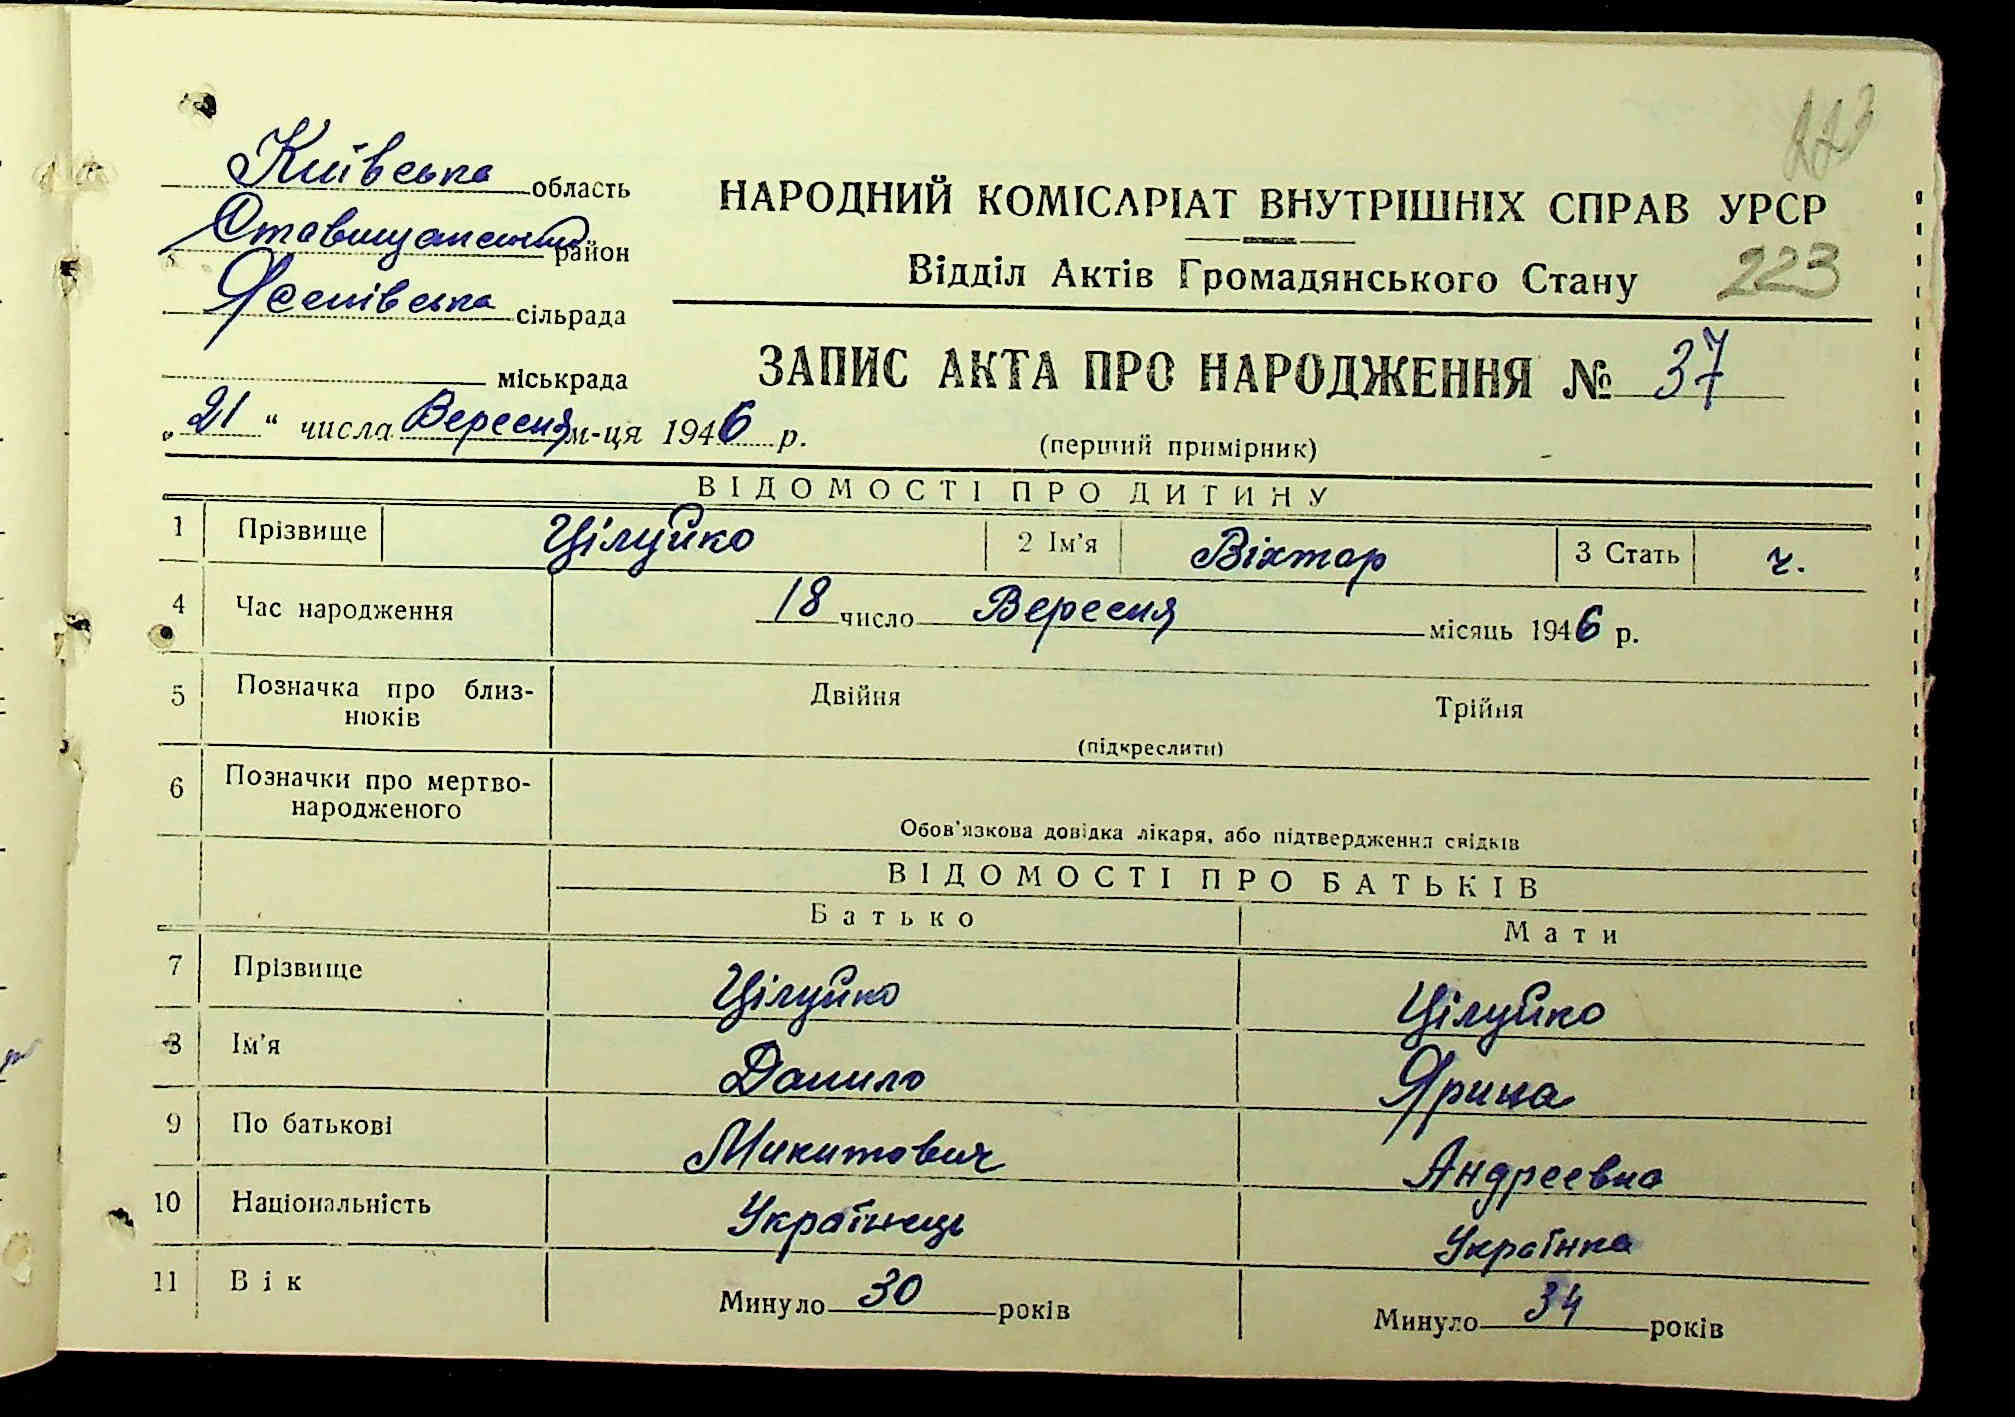 Київська область
Ставищанський район
Ясенівська сільрада
міськрада
„21“ числа Вересня м-ця 1946 р.
НАРОДНИЙ КОМІСАРІАТ ВНУТРІШНІХ СПРАВ УРСР
Відділ Актів Громадянського Стану 223
ЗАПИС АКТА ПРО НАРОДЖЕННЯ № 37
(перший примірник)
ВІДОМОСТІ ПРО ДИТИНУ
1 Прізвище Цілуйко 2 Ім'я Віктор 3 Стать ч.
4 Час народження 18 число Вересня місяць 1946 р.
5 Позначка про близ-
нюків Двійня Трійня
(підкреслити)
6 Позначки про мертво-
народженого
Обов'язкова довідка лікаря, або підтвердження свідків
ВІДОМОСТІ ПРО БАТЬКІВ
Батько Мати
7 Прізвище Цілуйко Цілуйко
8 Ім'я Данило Ярина
9 По батькові Микитович Андреевна
10 Національність Українець Українка
11 Вік Минуло 30 років Минуло 34 років